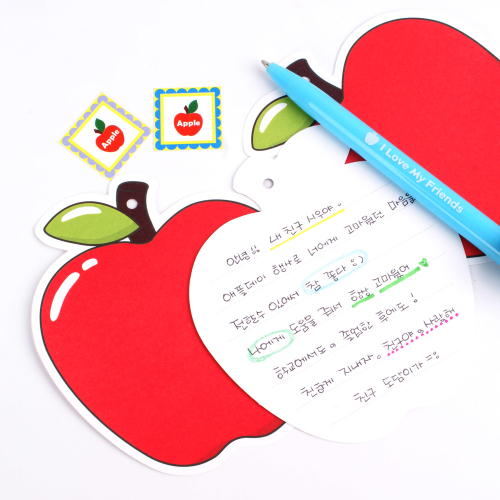 Apple
Apple
I Love My Friends
안녕!! 내 친구 시우야
애플데이 행사로 너에게 고마웠던 마음을
전할수 있어서 참 좋다 :)
나에게 도움을 줘서 항상 고마움어
학교에서도 졸업한 후에도!
친하게 지내자. 친구야 사랑해
친구 도담이가 =: